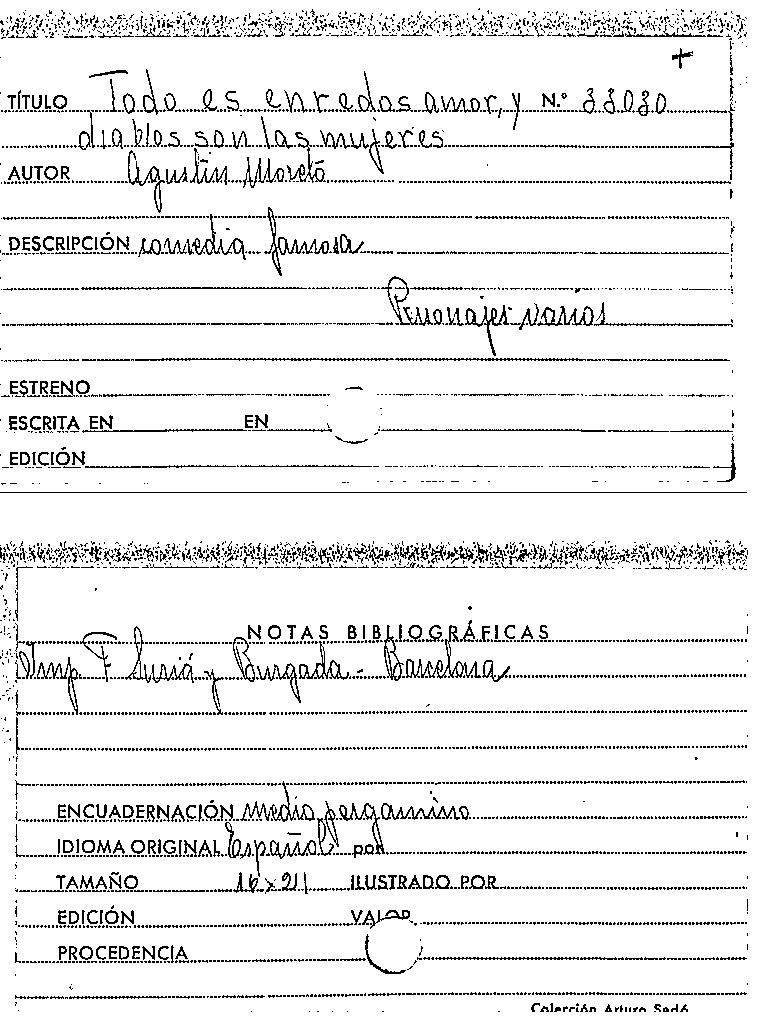 +
TÍTULO Todo es enredos amor, y N.º 33030
diablos son las mujeres
AUTOR Agustin Moreto
DESCRIPCIÓN comedia famosa
Personajes varios
ESTRENO
ESCRITA EN EN
EDICIÓN
NOTAS BIBLIOGRÁFICAS
Imp F Suriá y Burgada - Barcelona
ENCUADERNACIÓN medio pergamino
IDIOMA ORIGINAL Español por
TAMAÑO 16 x 21 ILUSTRADO POR
EDICIÓN VALOR
PROCEDENCIA
Colección Arturo Sedó